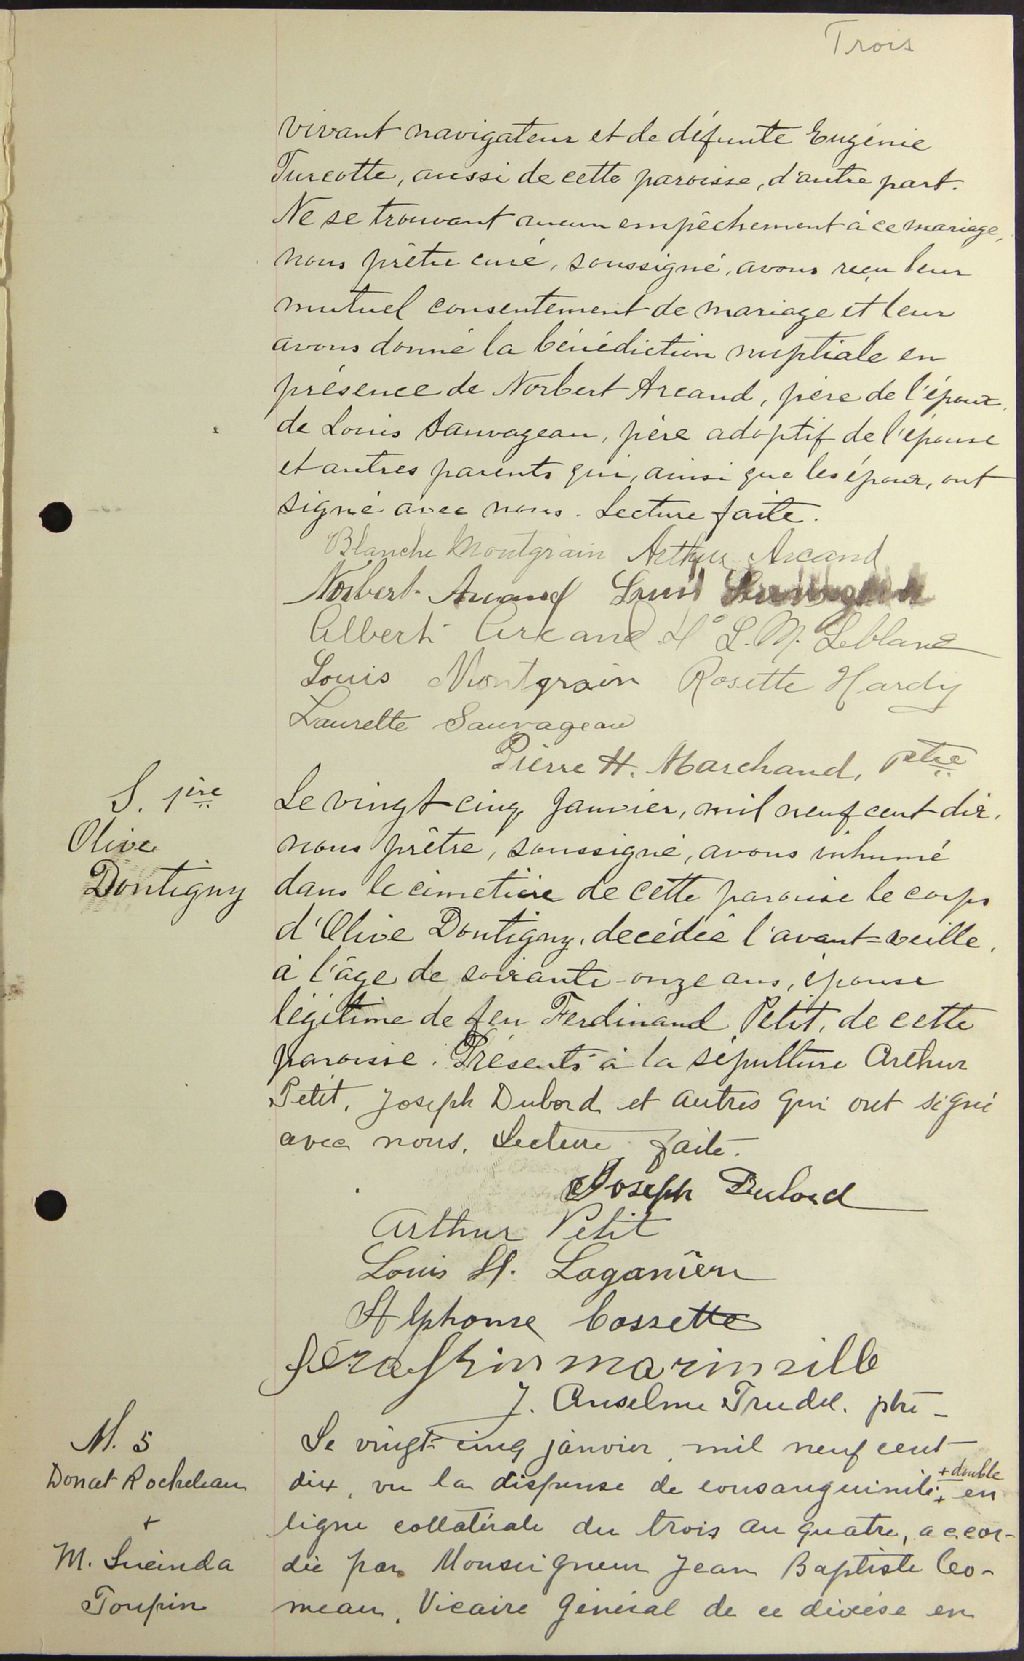 Trois
vivant navigateur et de défunte Eugénie
Turcotte, aussi de cette paroisse, d'autre part.
Ne se trouvant aucun empêchement à ce mariage,
nous prêtre curé, soussigné, avons reçu leur
mutuel consentement de mariage et leur
avons donné la bénédiction nuptiale en
présence de Norbert Arcand, père de l'époux,
de Louis Sauvageau, père adoptif de l'épouse
et autres parents qui, ainsi que les époux, ont
signé avec nous. Lecture faite.
Blanche Montgrain Arthur Arcand
Norbert Arcand Louis Sauvageau
Albert Arcand L. M. Leblanc
Louis Montgrain Rosette Hardy
Laurette Sauvageau
Pierre H. Marchand, ptre
S. 1ière
Olive
Dontigny
Le vingt cinq Janvier, mil neuf cent dix,
nous prêtre, soussigné, avons inhumé
dans le cimetière de cette paroisse le corps
d'Olive Dontigny, decédée l'avant=veille,
à l'âge de soixante-onze ans, épouse
légitime de feu Ferdinand Petit, de cette
paroisse. Présents à la sépulture Arthur
Petit, Joseph Dubord et autres qui ont signé
avec nous. Lecture faite.
Joseph Dubord
Arthur Petit
Louis H. Laganière
Alphonse Cossette
Séraphin marinville
J. Anselme Trudel. ptre
M. 5
Donat Rocheleau
+
M. Lucinda
Toupin
Le vingt-cinq janvier mil neuf cent
+ double
dix, vu la dispense de consanguinité + en
ligne collatérale du trois au quatre, accor-
dée par Monseigneur Jean Baptiste Co-
meau, Vicaire Général de ce diocèse en